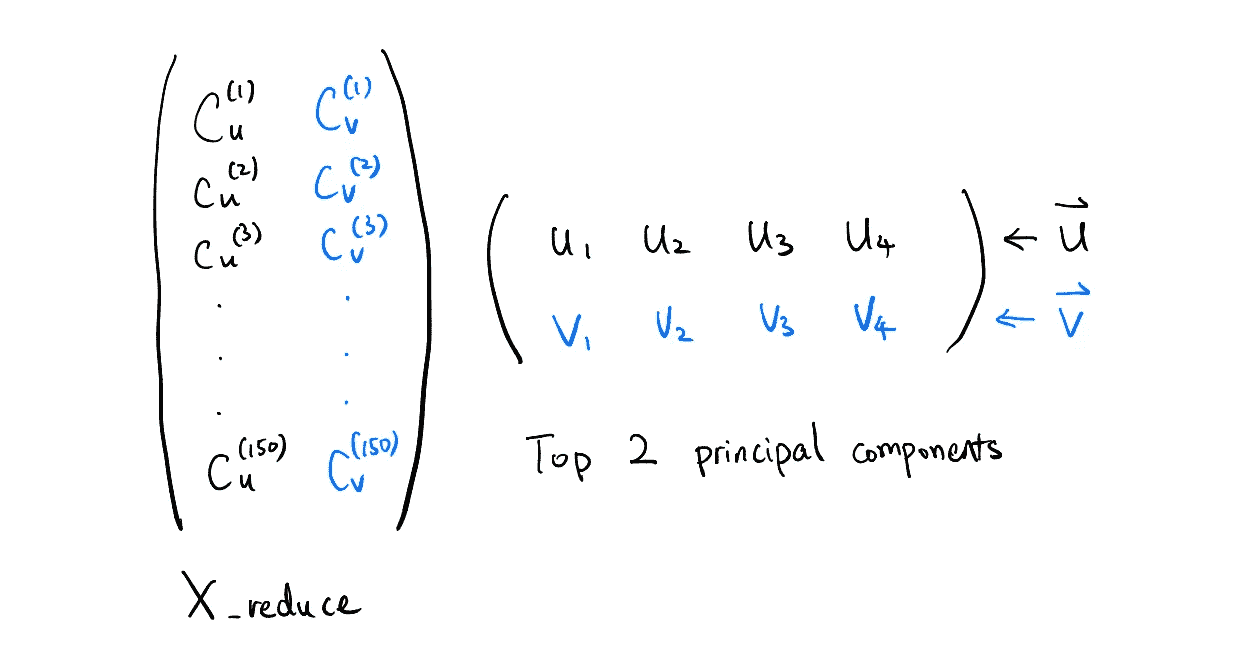 C_u^(1) C_v^(1)
C_u^(2) C_v^(2)
C_u^(3) C_v^(3)
. .
. .
. .
C_u^(150) C_v^(150)
X_reduce
u_1 u_2 u_3 u_4 ← u⃗
v_1 v_2 v_3 v_4 ← v⃗
Top 2 principal components